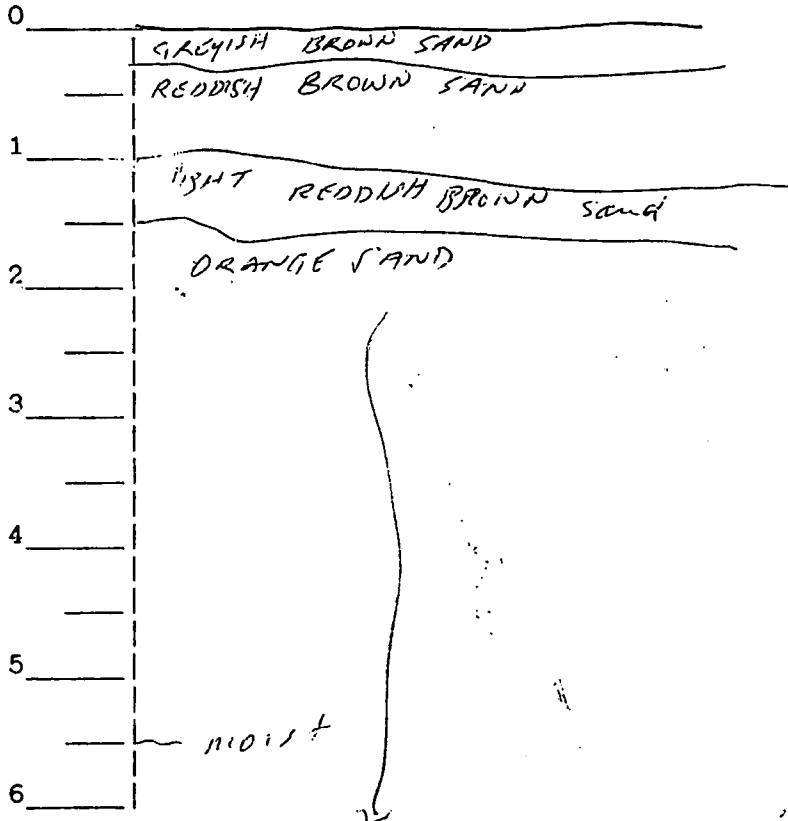 0
GREYISH BROWN SAND
REDDISH BROWN SAND
1
light REDDISH BROWN Sand
2
ORANGE SAND
3
4
5
moist
6